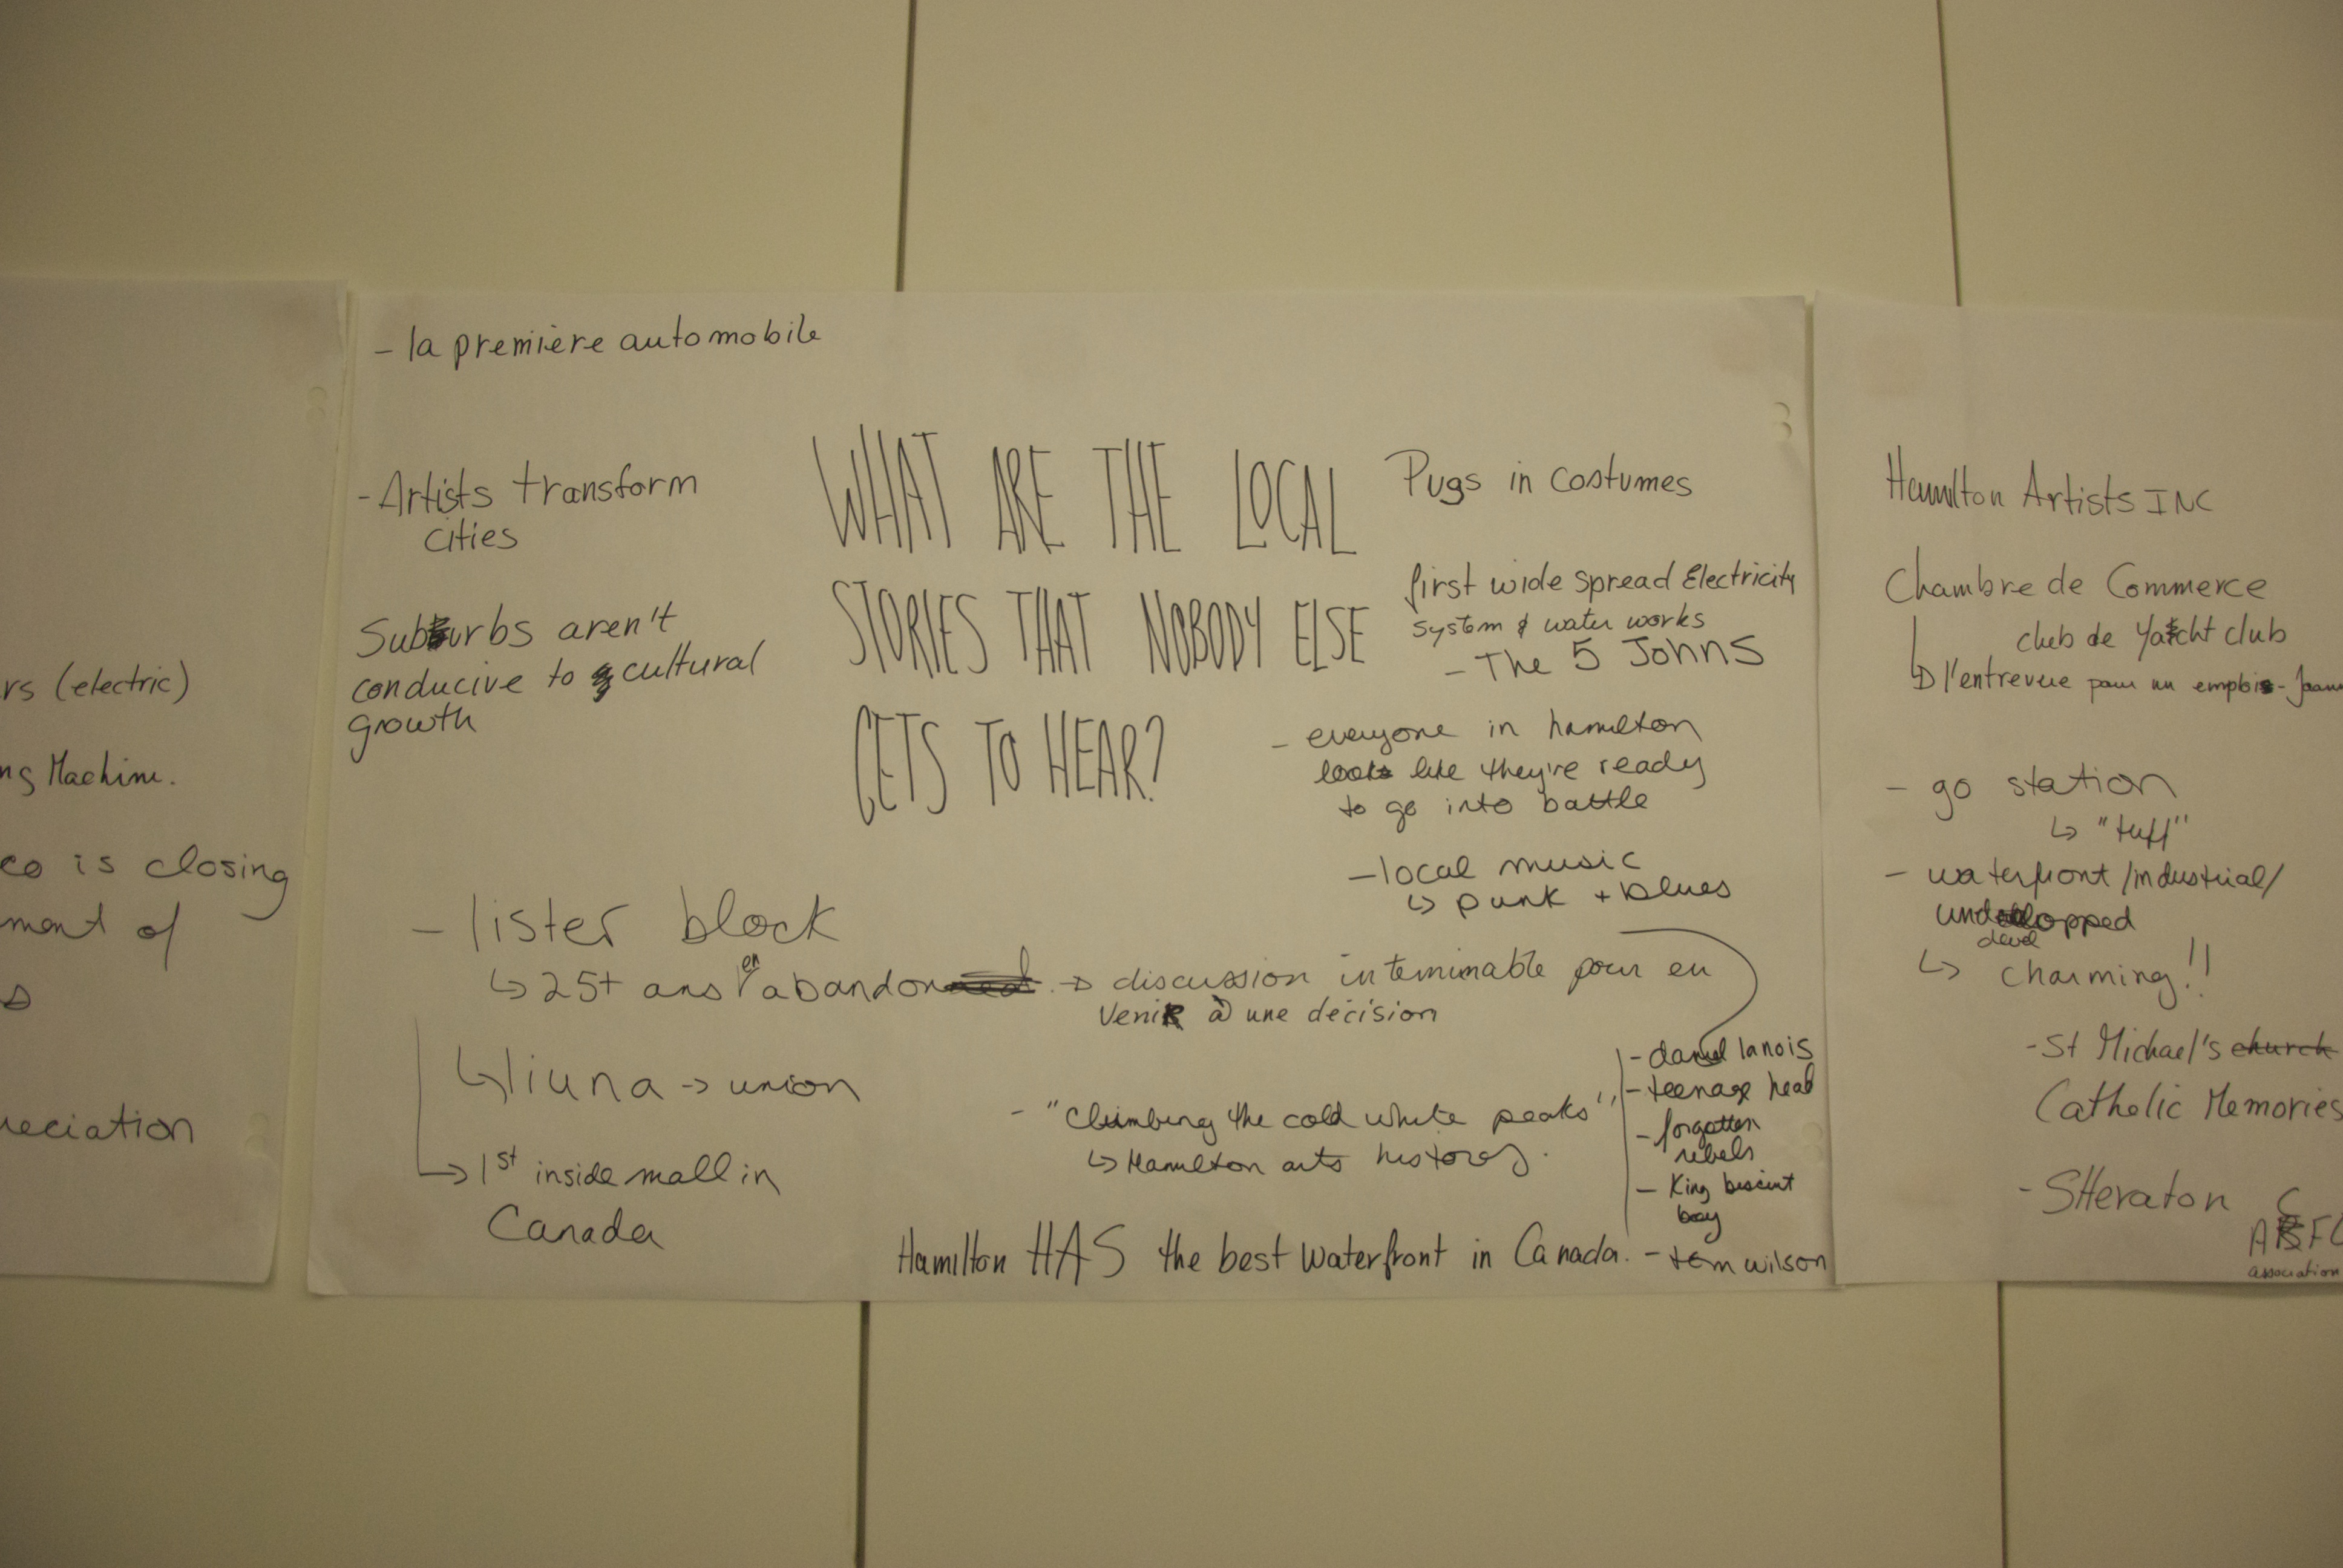 rs (electric)
ng Machine.
co is closing
ment of
reciation
- la première automobile
- Artists transform
cities
Suburbs aren't
conducive to cultural
growth
WHAT ARE THE LOCAL
STORIES THAT NOBODY ELSE
GETS TO HEAR?
Pugs in costumes
first wide spread Electricity
system & water works
- The 5 Johns
- everyone in hamilton
looks like they're ready
to go into battle
- local music
↳ punk + blues
- lister block
↳ 25+ ans en abandon → discussion interminable pour en
venir à une décision
↳ liuna → union
↳ 1st inside mall in
Canada
- "Climbing the cold white peaks"
↳ Hamilton arts history.
- daniel lanois
- teenage head
- forgotten
rebels
- King biscuit
boy
- tom wilson
Hamilton HAS the best waterfront in Canada.
Hamilton Artists INC
Chambre de Commerce
club de Yacht club
↳ l'entrevue pour un emploi -
- go station
↳ "tuff"
- waterfront/industrial/
undevelopped
↳ charming!!
- St Michael's church
Catholic Memories
- SHeraton
ACFO
association